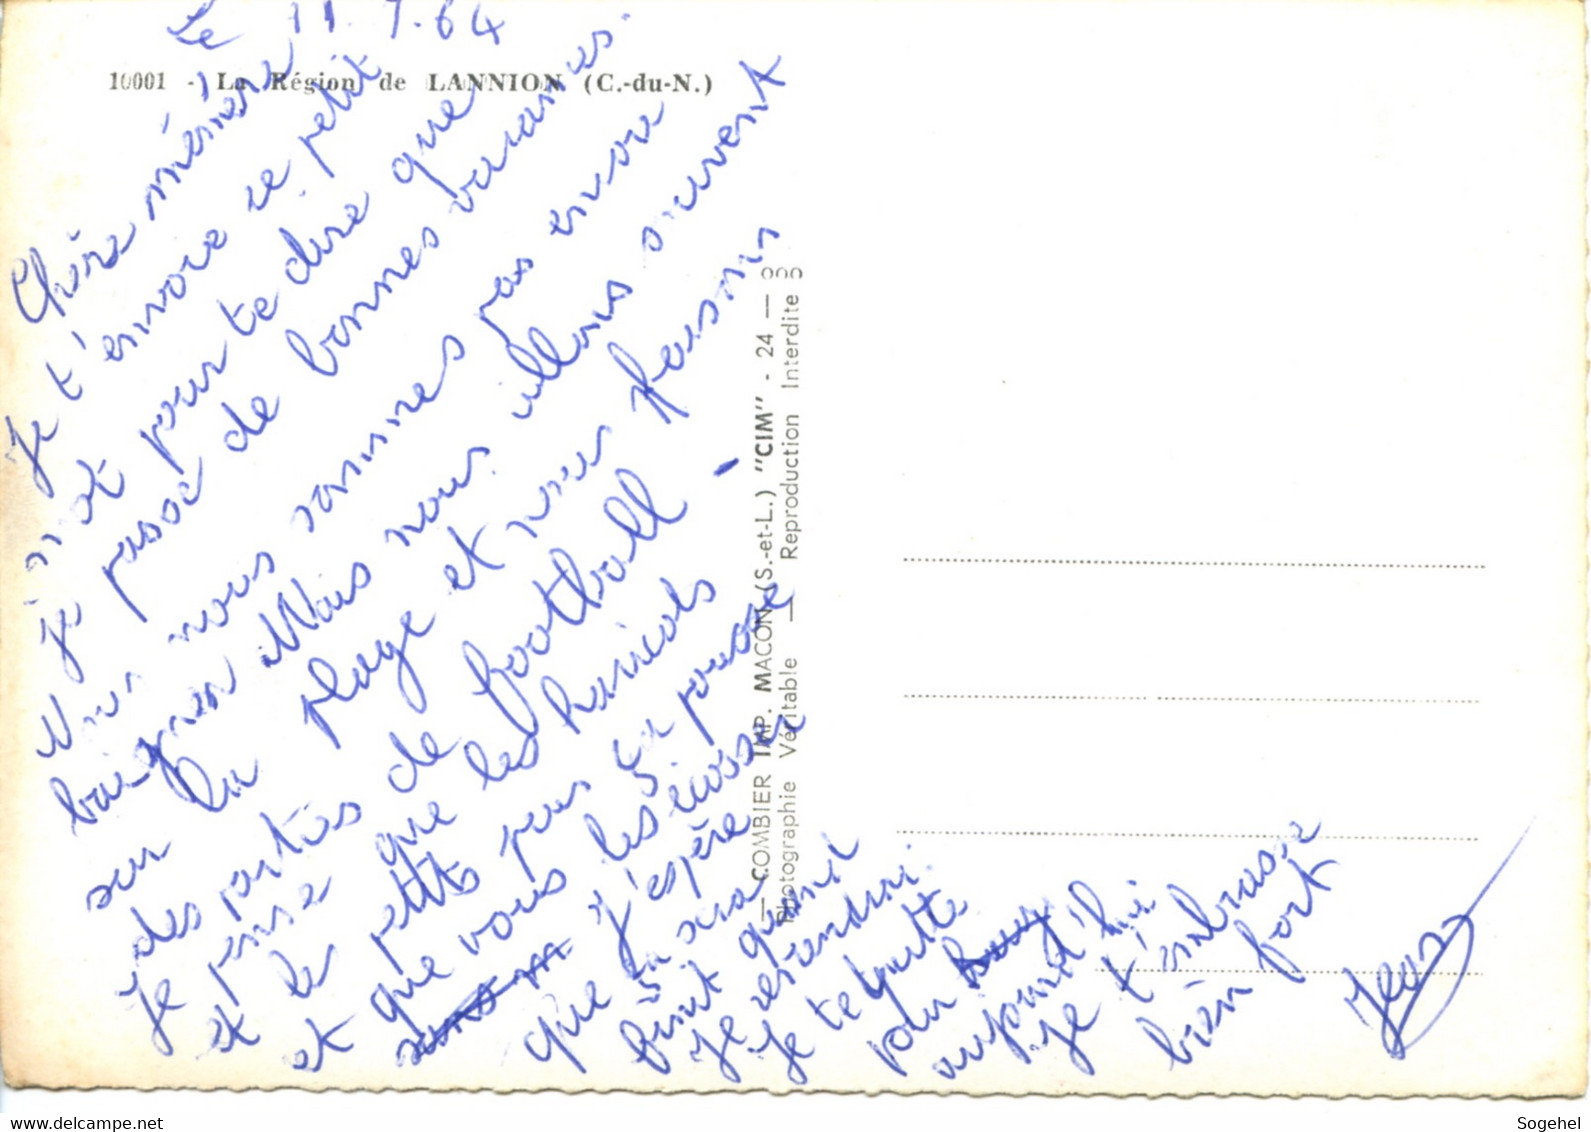 Le 11.7.64
10001 - La Région de LANNION (C.-du-N.)
Chère mémère
Je t'envoie ce petit
mot pour te dire que
je passe de bonnes vacances.
Nous nous sommes pas encore
baigner Mais nous allons souvent
sur la plage et nous faisons
des parties de football -
Je pense que les haricots
et les petits pois ça pousse
et que vous les écosser
j'espère
que ça sera
finit quand
je reviendrai.
Je te quitte
pour
aujourd'hui
Je t'embrasse
bien fort
Jean
— COMBIER IMP. MACON (S.-et-L.) "CIM" - 24 —
Photographie Véritable — Reproduction Interdite
www.delcampe.net
Sogehel